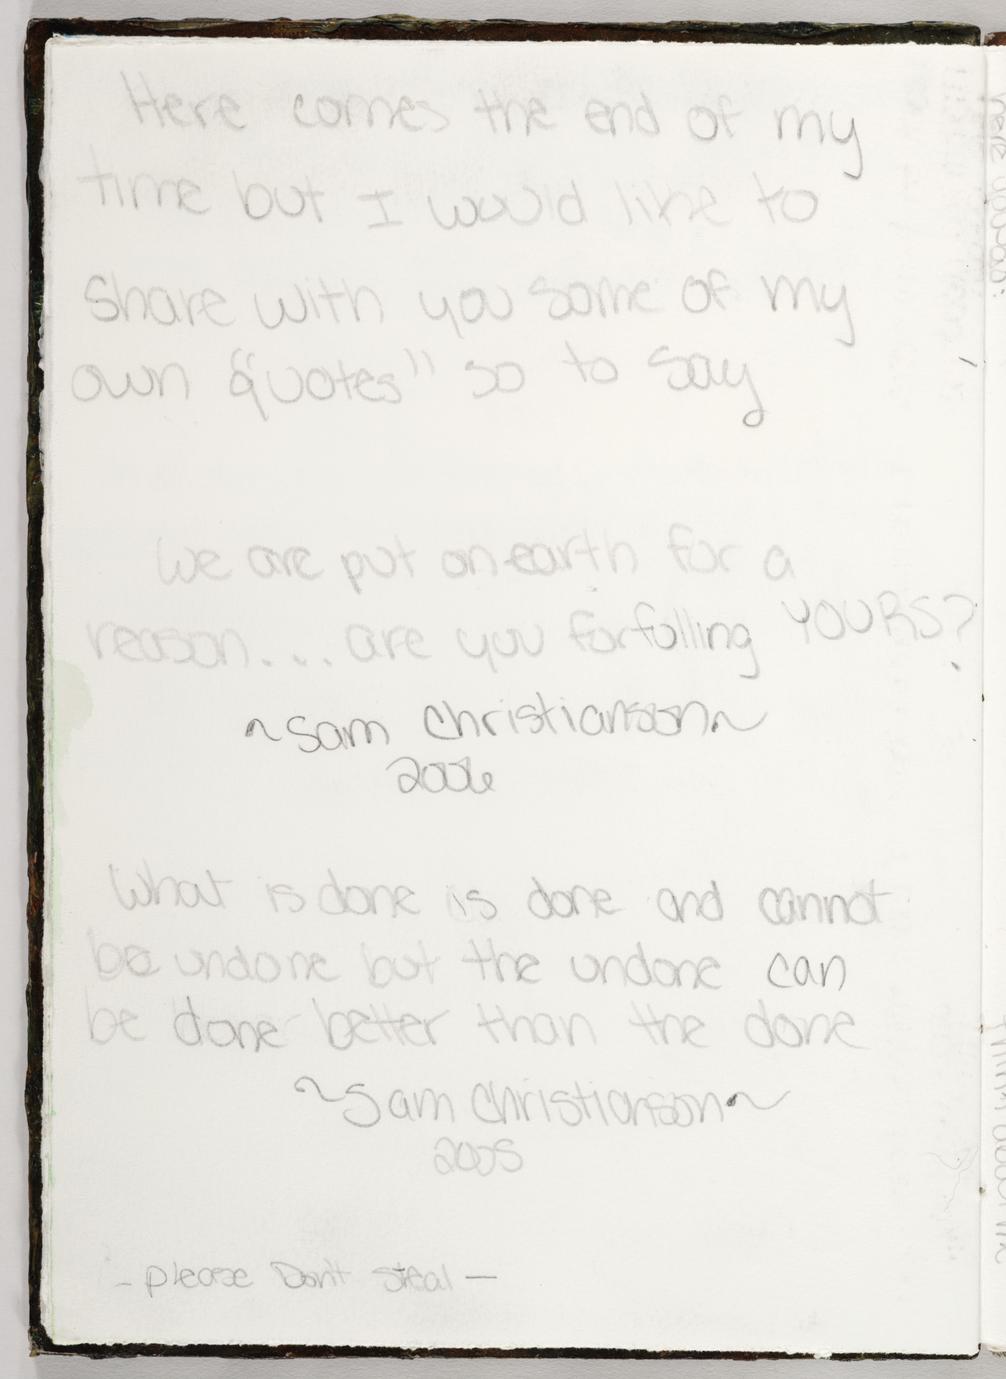 Here comes the end of my
time but I would like to
Share with you some of my
own "Quotes" so to say
We are put on earth for a
reason.... are you forfolling YOURS?
~Sam Christianson~
2006
What is done is done and cannot
be undone but the undone can
be done better than the done
~Sam Christianson~
2005
- please Don't steal -